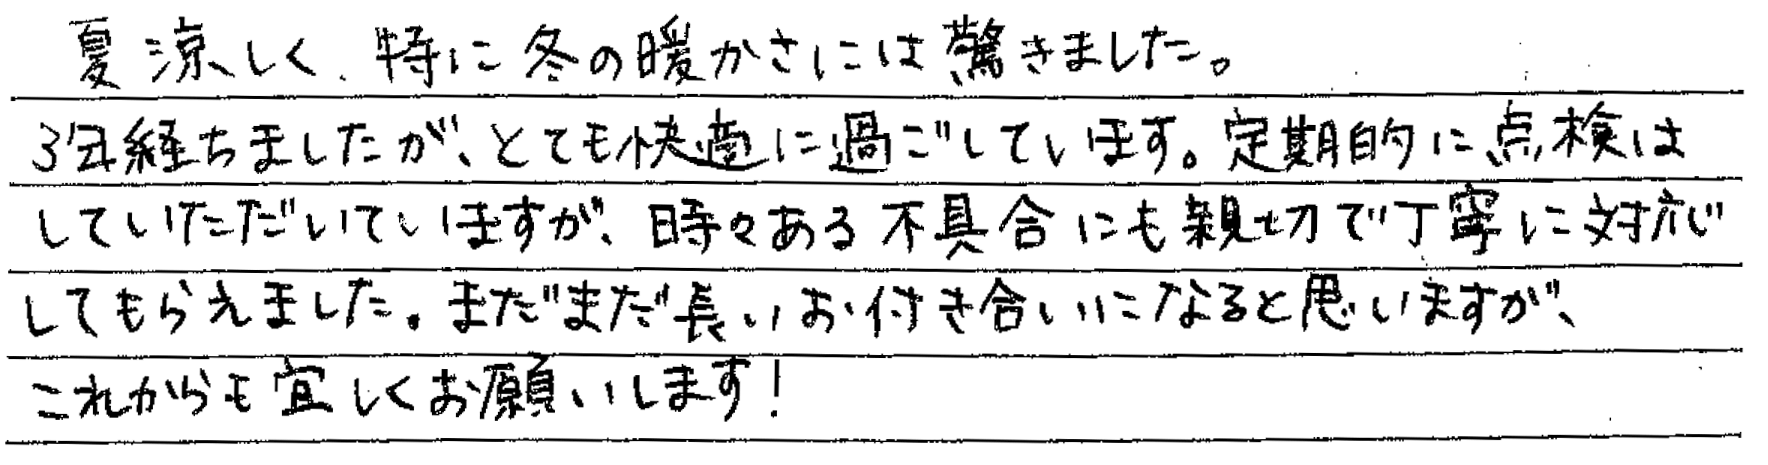 夏涼しく、特に冬の暖かさには驚きました。
3年経ちましたが、とても快適に過ごしています。定期的に点検は
していただいていますが、時々ある不具合にも親切で丁寧に対応
してもらえました。まだまだ長いお付き合いになると思いますが、
これからも宜しくお願いします!